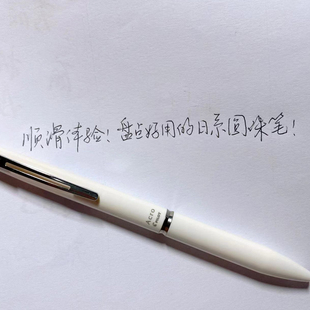 顺滑体验！盘点好用的日系圆珠笔！
Acro